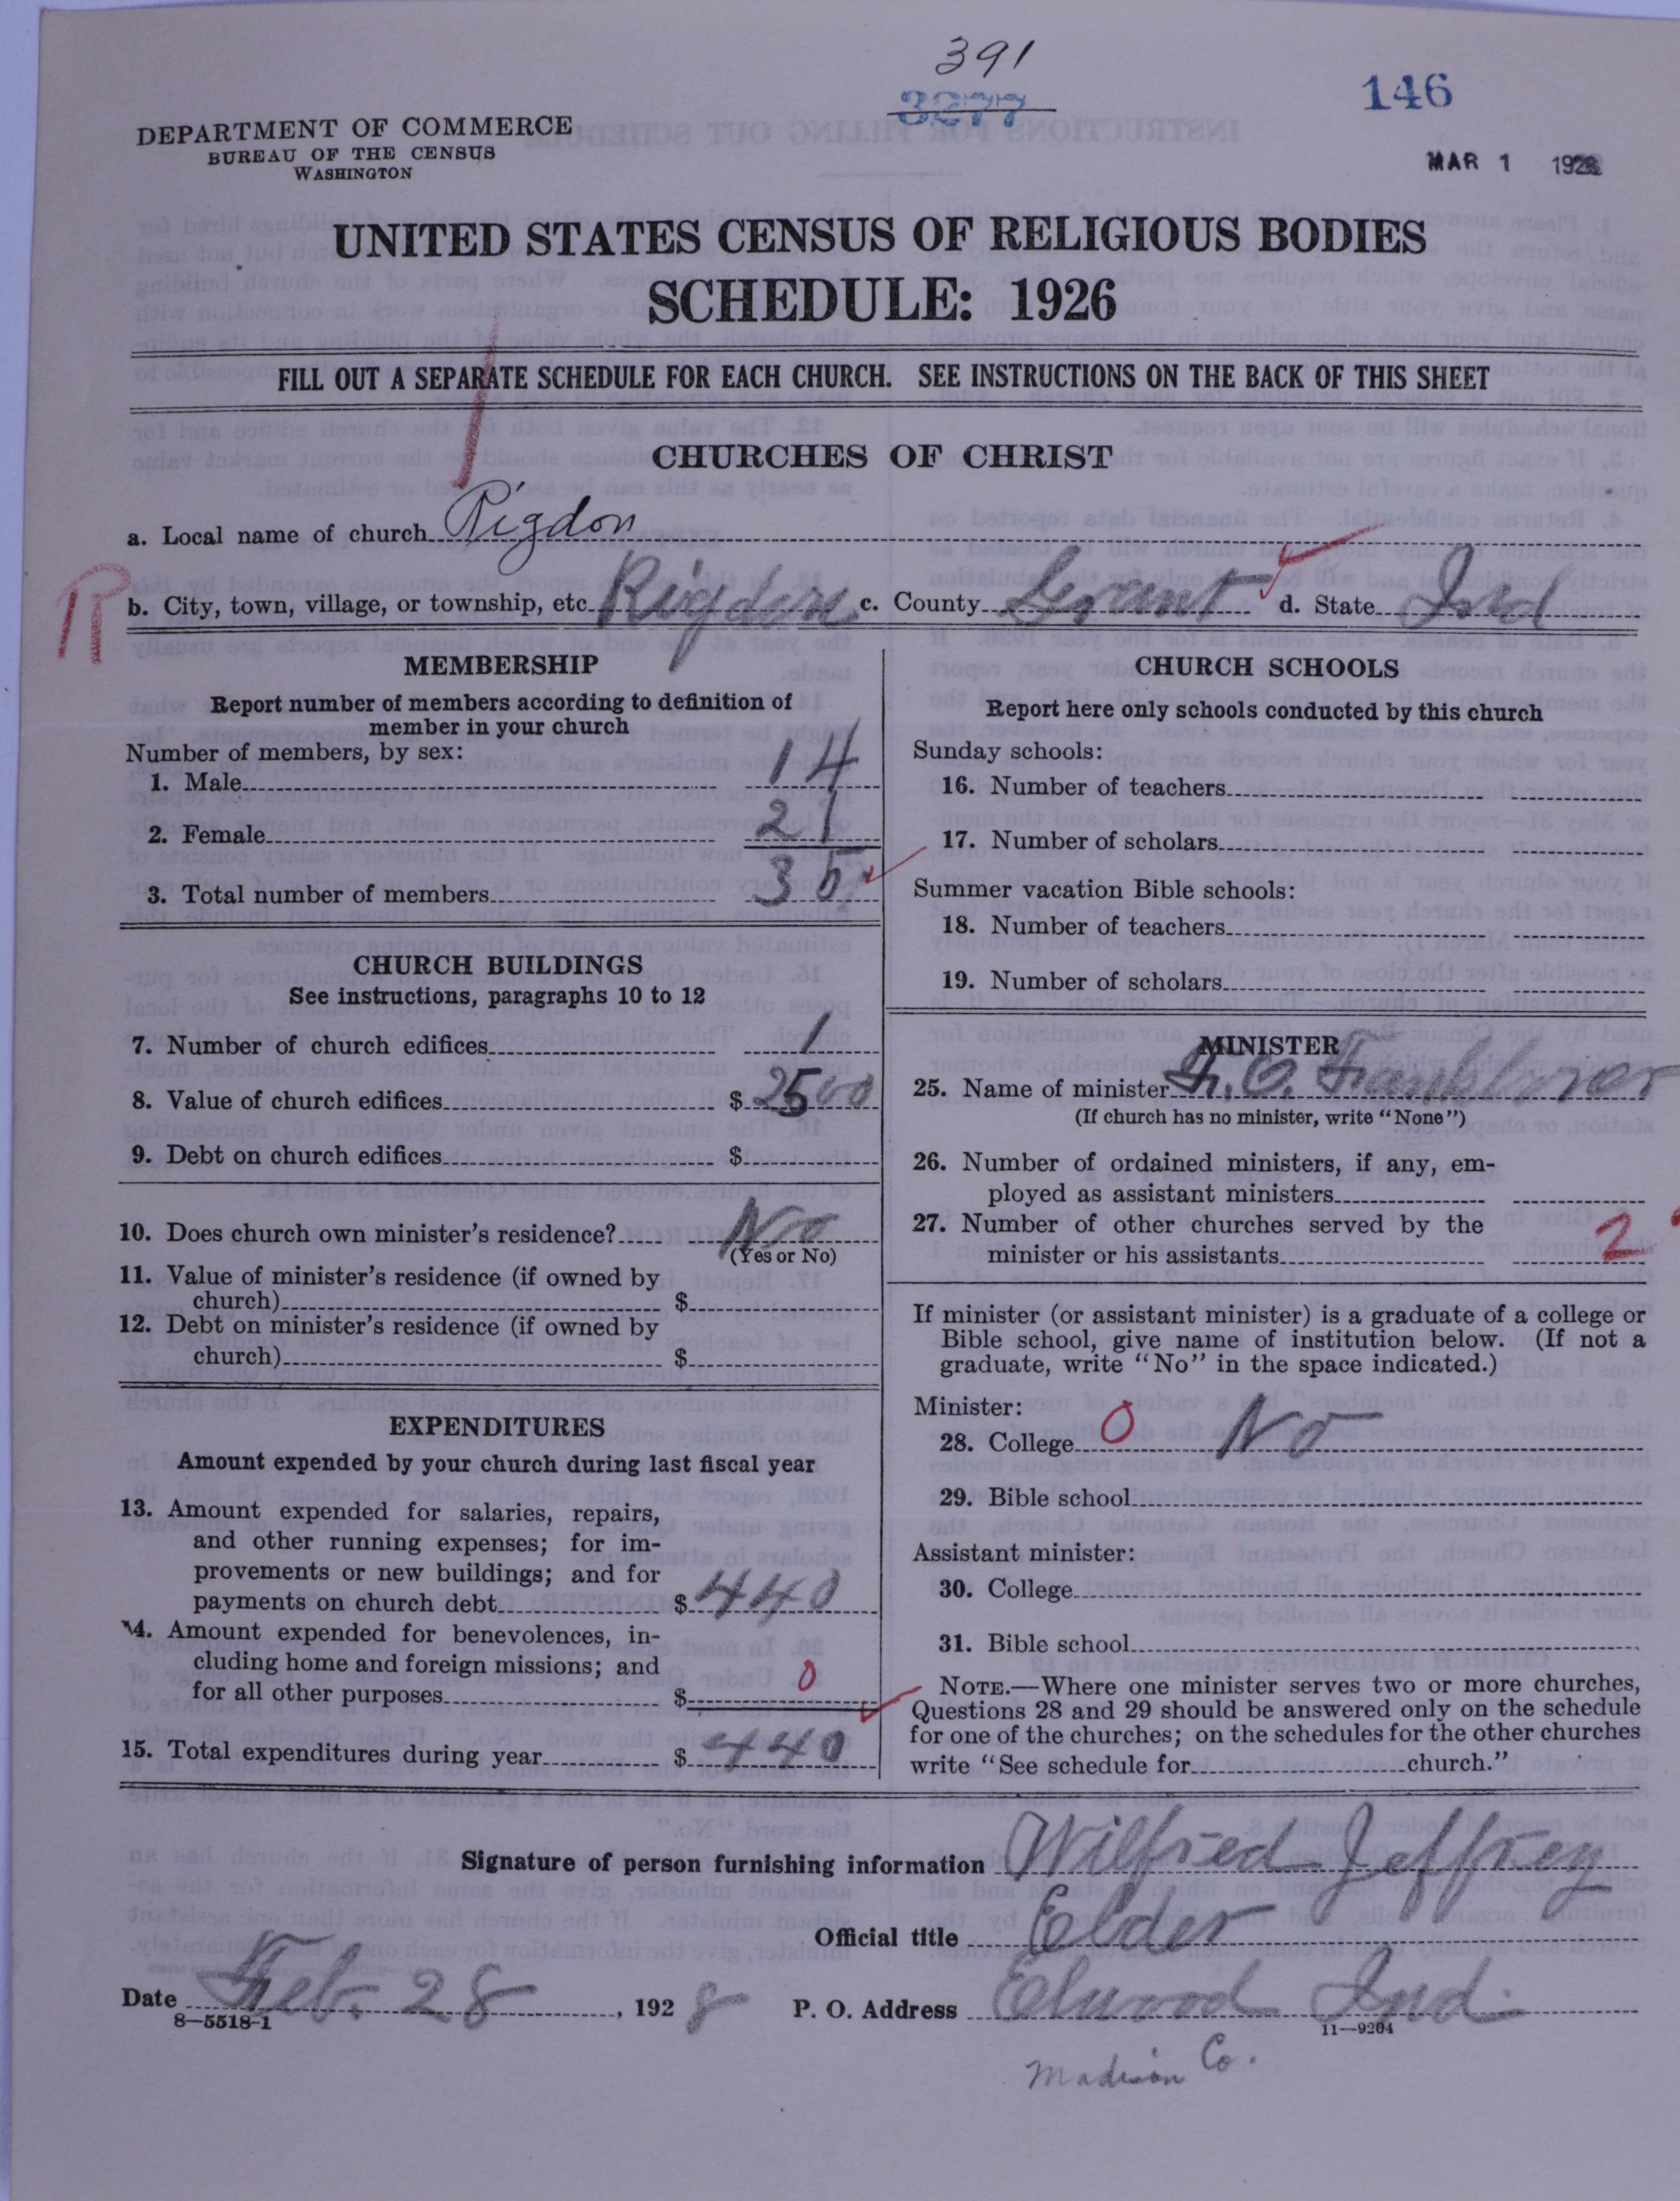 391
3277
146
DEPARTMENT OF COMMERCE
BUREAU OF THE CENSUS
WASHINGTON
MAR 1 1928
UNITED STATES CENSUS OF RELIGIOUS BODIES
SCHEDULE: 1926
FILL OUT A SEPARATE SCHEDULE FOR EACH CHURCH. SEE INSTRUCTIONS ON THE BACK OF THIS SHEET
CHURCHES OF CHRIST
a. Local name of church Rigdon
R
b. City, town, village, or township, etc. Rigdon c. County Grant d. State Ind
MEMBERSHIP
Report number of members according to definition of
member in your church
Number of members, by sex:
1. Male 14
2. Female 21
3. Total number of members 35
CHURCH BUILDINGS
See instructions, paragraphs 10 to 12
7. Number of church edifices 1
8. Value of church edifices $ 2500
9. Debt on church edifices $
10. Does church own minister's residence? No
(Yes or No)
11. Value of minister's residence (if owned by
church) $
12. Debt on minister's residence (if owned by
church) $
EXPENDITURES
Amount expended by your church during last fiscal year
13. Amount expended for salaries, repairs,
and other running expenses; for im-
provements or new buildings; and for
payments on church debt $ 440
14. Amount expended for benevolences, in-
cluding home and foreign missions; and
for all other purposes $ 0
15. Total expenditures during year $ 440
CHURCH SCHOOLS
Report here only schools conducted by this church
Sunday schools:
16. Number of teachers
17. Number of scholars
Summer vacation Bible schools:
18. Number of teachers
19. Number of scholars
MINISTER
25. Name of minister
(If church has no minister, write "None")
26. Number of ordained ministers, if any, em-
ployed as assistant ministers
27. Number of other churches served by the
minister or his assistants 2
If minister (or assistant minister) is a graduate of a college or
Bible school, give name of institution below. (If not a
graduate, write "No" in the space indicated.)
Minister:
28. College 0 No
29. Bible school
Assistant minister:
30. College
31. Bible school
NOTE.—Where one minister serves two or more churches,
Questions 28 and 29 should be answered only on the schedule
for one of the churches; on the schedules for the other churches
write "See schedule for church."
Signature of person furnishing information Wilfred Jeffrey
Official title Elder
Date Feb. 28, 1928 P. O. Address Elwood Ind.
8—5518-1 11—9204
Madison Co.